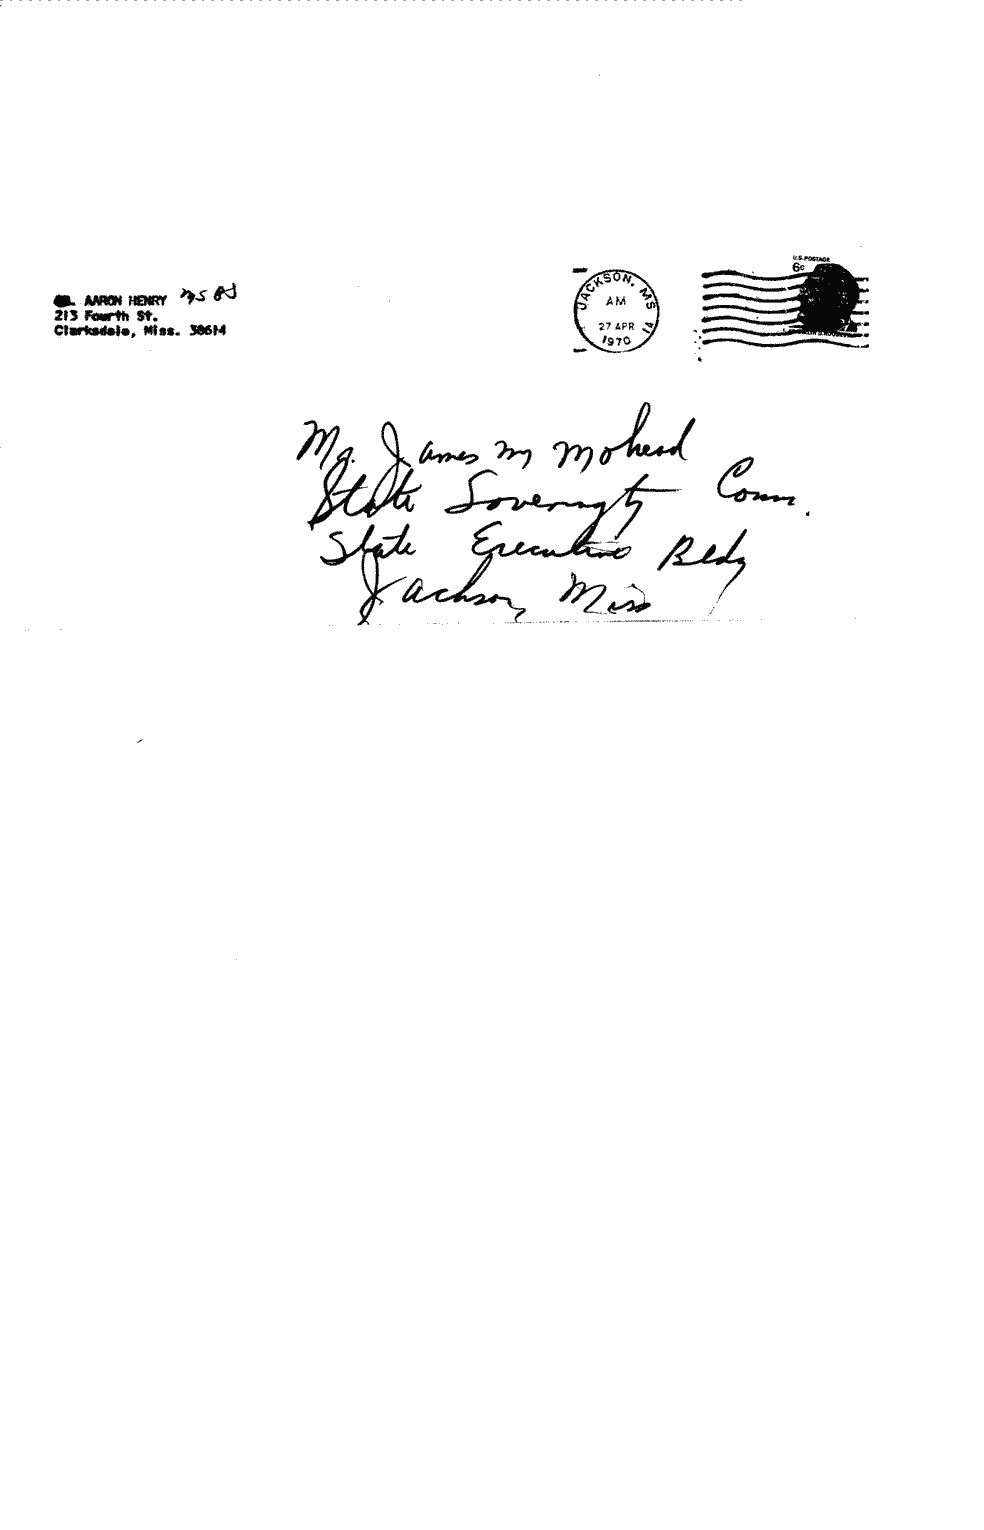 AARON HENRY
213 Fourth St.
Clarksdale, Miss. 38614
JACKSON, MS
AM
27 APR
1970
U.S. POSTAGE
6c
Mr. James M Mohead
State Soveringty Comm.
State Executive Bldg
Jackson, Miss